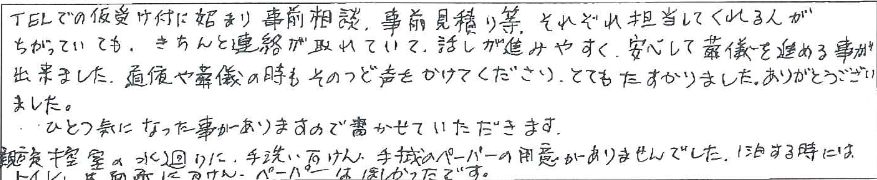 TELでの仮受け付に始まり 事前相談、事前見積り等、それぞれ担当してくれる人が
ちがっていても、きちんと連絡が取れていて、話しが進みやすく、安心して葬儀を進める事が
出来ました。通夜や葬儀の時もそのつど声をかけてくださり、とてもたすかりました。ありがとうござい
ました。
ひとつ気になった事がありますので書かせていただきます。
親族控室の水回りに、手洗い石けん、手拭のペーパーの用意がありませんでした。1泊する時には
トイレ、に石けん、ペーパーはほしかったです。